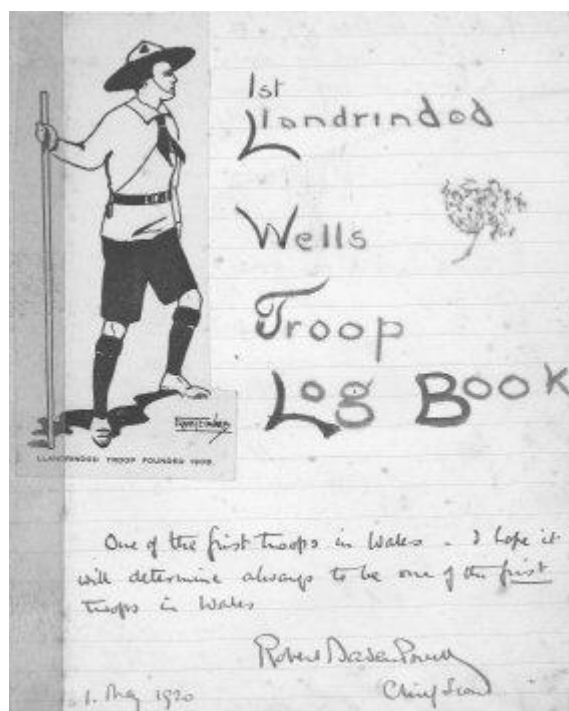 1st
Llandrindod
Wells
Troop
Log Book
LLANDRINDOD TROOP FOUNDED 1908
One of the first troops in Wales - I hope it
will determine always to be one of the first
troops in Wales
Robert Baden Powell
Chief Scout
1. May 1920